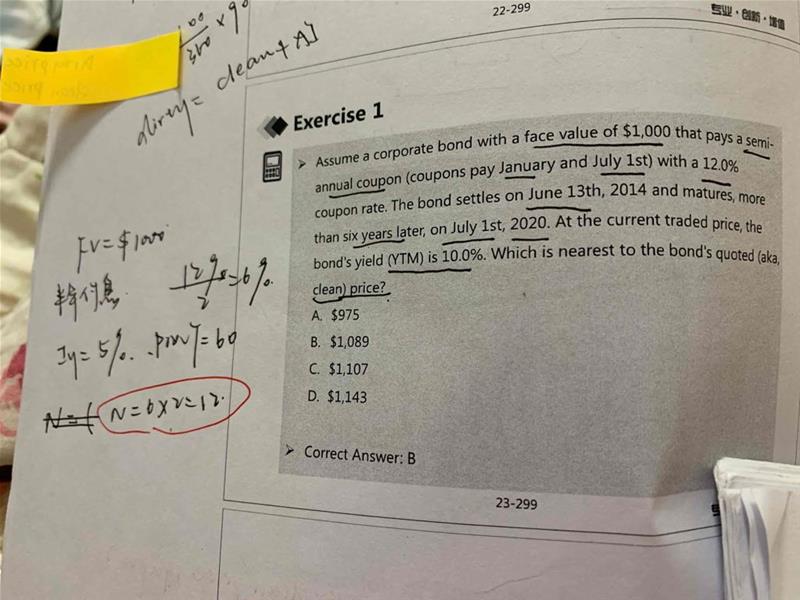 22-299
专业·创新·增值
100
360 × 90
dirty = clean + AI
Exercise 1
Assume a corporate bond with a face value of $1,000 that pays a semi-
annual coupon (coupons pay January and July 1st) with a 12.0%
coupon rate. The bond settles on June 13th, 2014 and matures, more
than six years later, on July 1st, 2020. At the current traded price, the
bond's yield (YTM) is 10.0%. Which is nearest to the bond's quoted (aka,
clean) price?
A. $975
B. $1,089
C. $1,107
D. $1,143
Correct Answer: B
23-299
FV=$1000
半年付息 12%/2=6%.
Iy=5%. PMT=60
N=6×2=12.